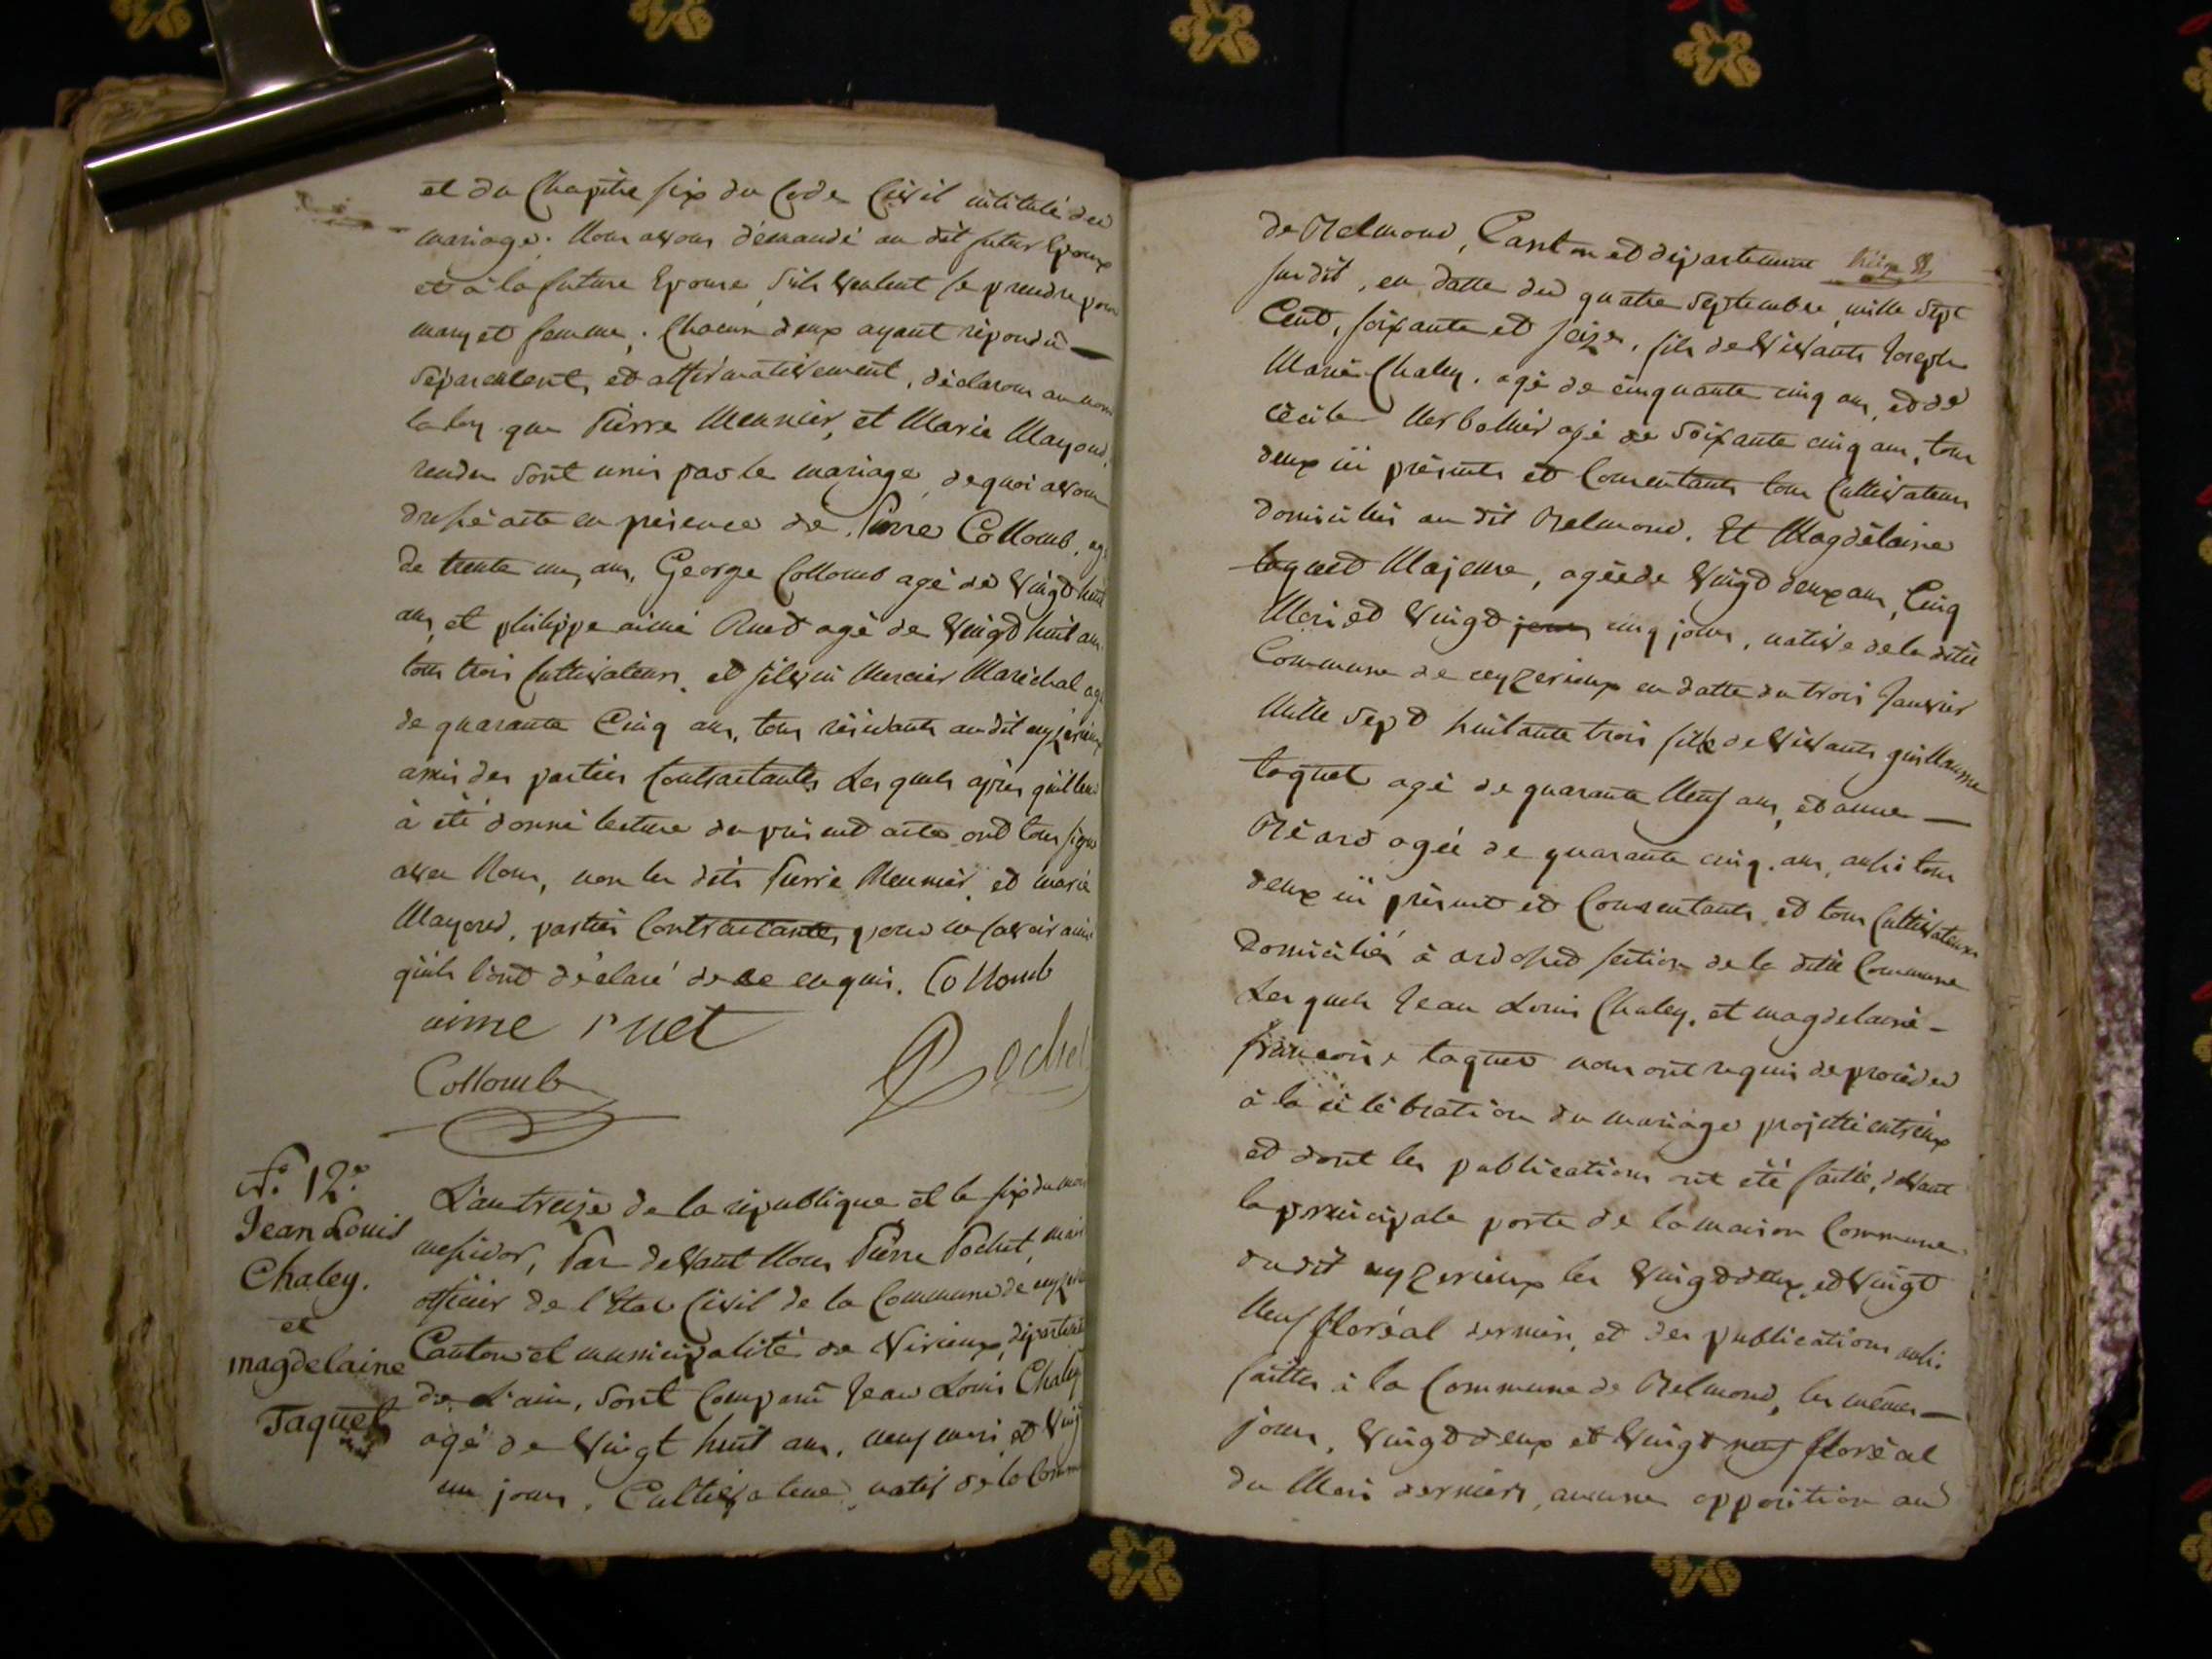 et du Chapitre six du Code Civil intitulé du
mariage. Nous avons démandé au dit futur Epoux
et à la future Epouse, s'ils veulent se prendre pour
mary et femme, Chacun deux ayant répondu
séparement, et affirmativement, déclarons au nom
la loy que Pierre Meunier, et Marie Mayoud,
sont unis par le mariage, de quoi avons
dressé acte en présence de Pierre Collomb, agé
de trente un ans, George Collomb agé de vingt huit
ans, et philippe aimé Ruet agé de vingt huit ans
tous trois Cultivateurs, et Mercier Maréchal agé
de quarante Cinq ans, tous résidants au dit ceyzerieux
amis des parties Contractantes Les quels après qu'il leur
à été donné lecture du présent acte ont tous signé
avec Nous, non les dits Pierre Meunier, et marie
Mayoud, parties Contractantes pour ne savoir ainsi
qu'ils l'ont déclaré de ce enquis. Collomb
aime ruet
Collomb Pochet
N.° 12.e
Jean Louis
Chaley.
et
magdelaine
Taquet
L'an treize de la république et le six du mois
messidor, Par devant Nous Pierre Pochet, maire
officier de l'Etat Civil de la Commune de ceyzerieux
Canton et municipalité de Virieux, département
de L'ain, sont Comparu Jean Louis Chaley
agé de vingt huit ans, neuf mois et vingt
un jours, Cultivateur, natif de la Commune
de Belmond, Canton et département
susdit, en datte du quatre septembre, mille sept
Cent, soixante et seize, fils de vivants Joseph
Marie Chaley, agé de cinquante cinq ans, et de
Cécile agé de soixante cinq ans, tous
deux ici présents et Consentants tous Cultivateurs
domiciliés au dit Belmond. Et Magdelaine
taquet Majeure, agée de vingt deux ans, Cinq
Mois et vingt jours cinq jours, native de la dite
Commune de ceyzerieux en datte du trois Janvier
Mille sept huitante trois fille de vivants guillaume
taquet agé de quarante Neuf ans, et anne
Béard agée de quarante cinq ans, aussi tous
deux ici présent et Consentants, et tous Cultivateurs
Domiciliés à ardosset section de la dite Commune
Les quels Jean Louis Chaley, et magdelaine
françoise taquet nous ont requis de procéder
à la célébration du mariage projetté entr'eux
et dont les publications ont été faitte, devant
la principale porte de la maison Commune
dudit ceyzerieux les vingt deux, et vingt
Neuf floréal dernier, et des publications aussi
faittes à la Commune de Belmond, les mêmes
jours, vingt deux et vingt neuf floréal
du Mois dernier, aucune opposition au